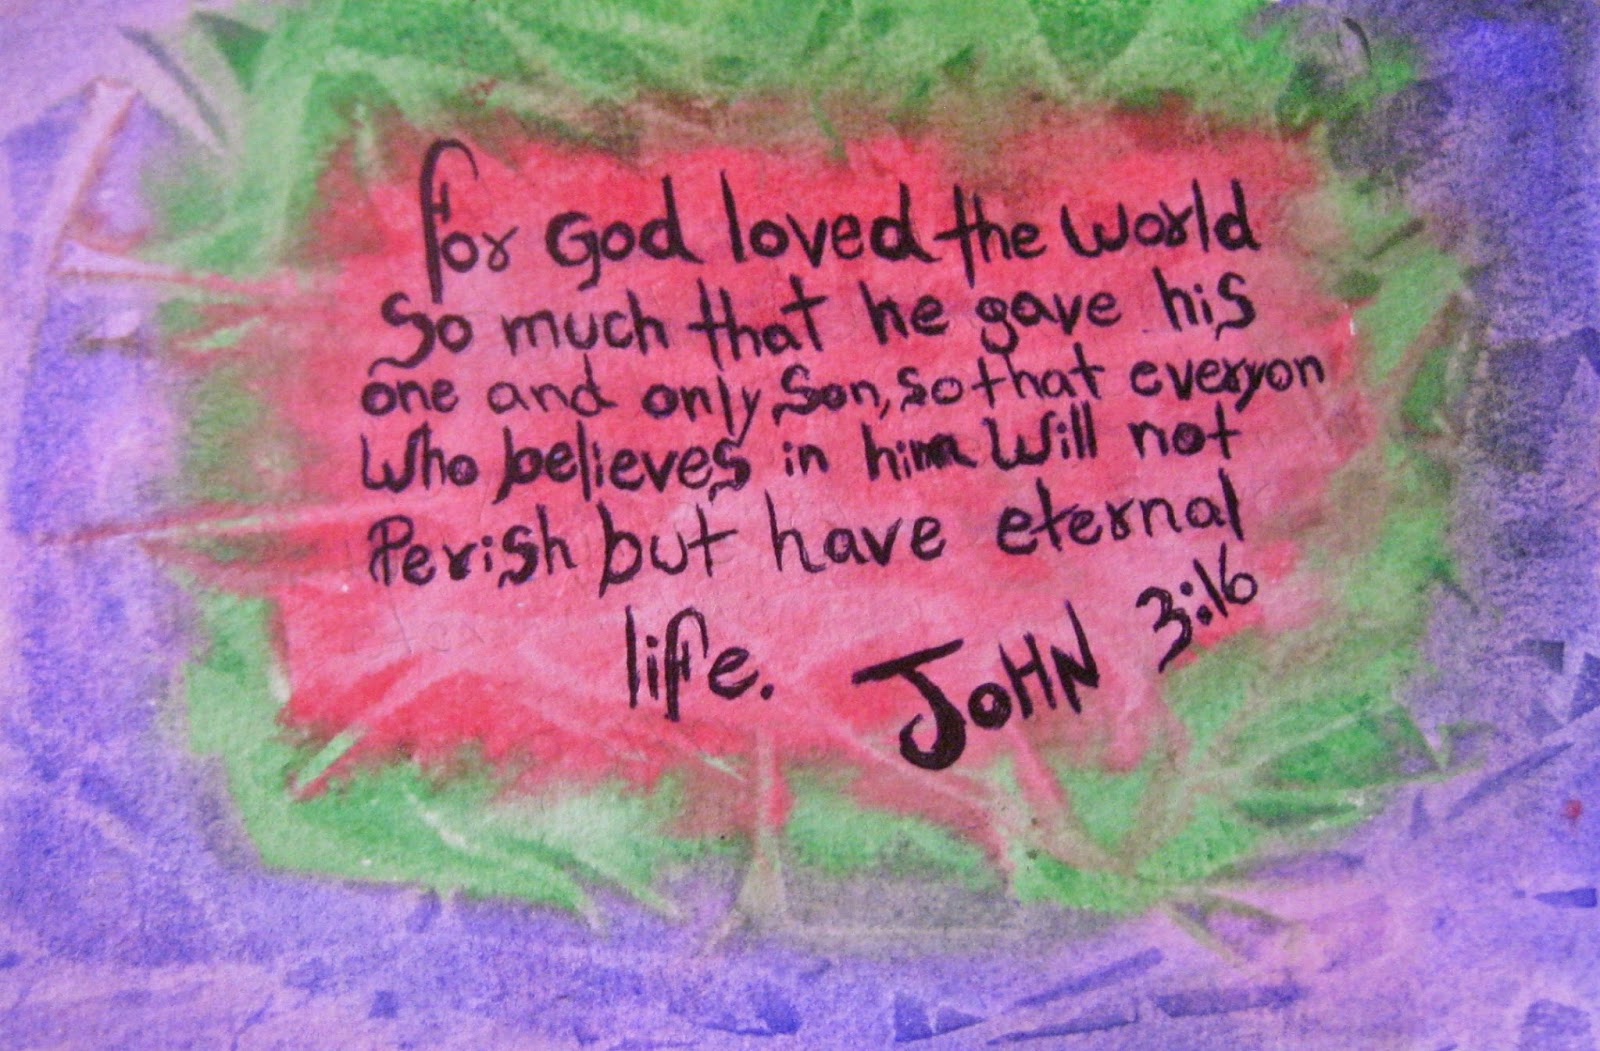 for God loved the world
So much that he gave his
one and only Son, so that everyon
Who believes in him Will not
Perish but have eternal
life. JOHN 3:16